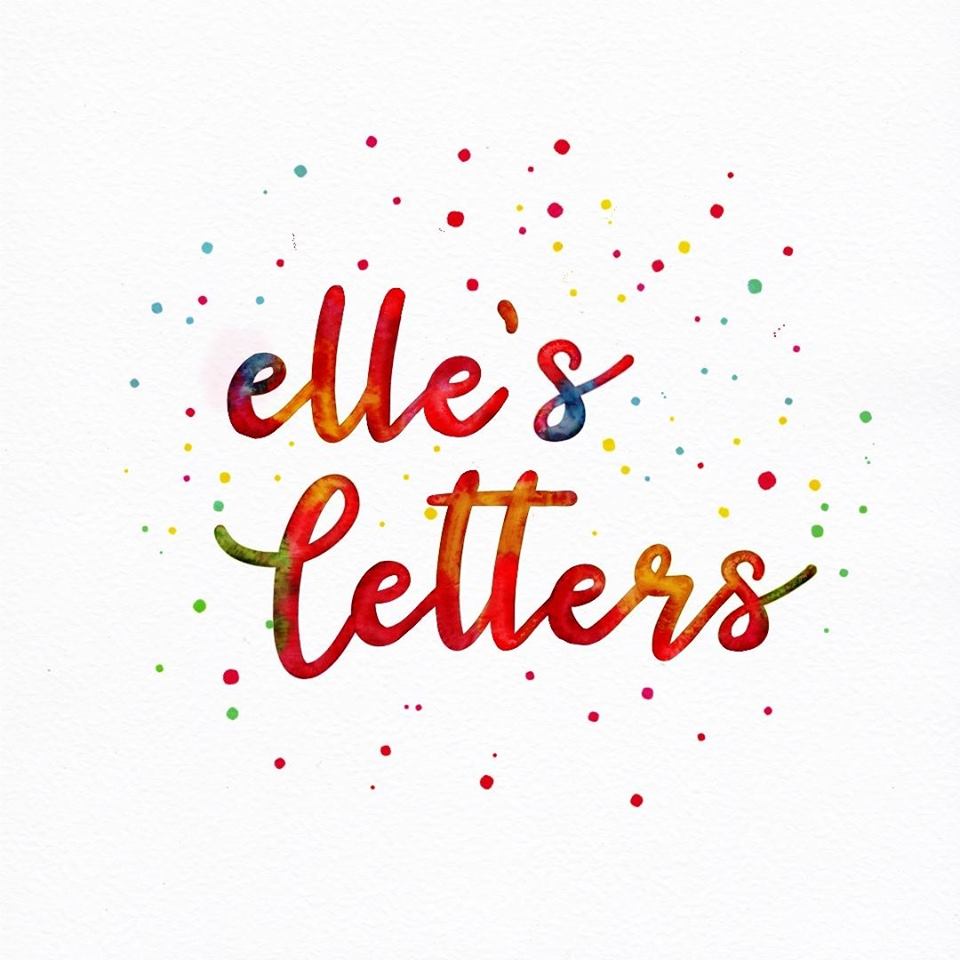 elle's
letters